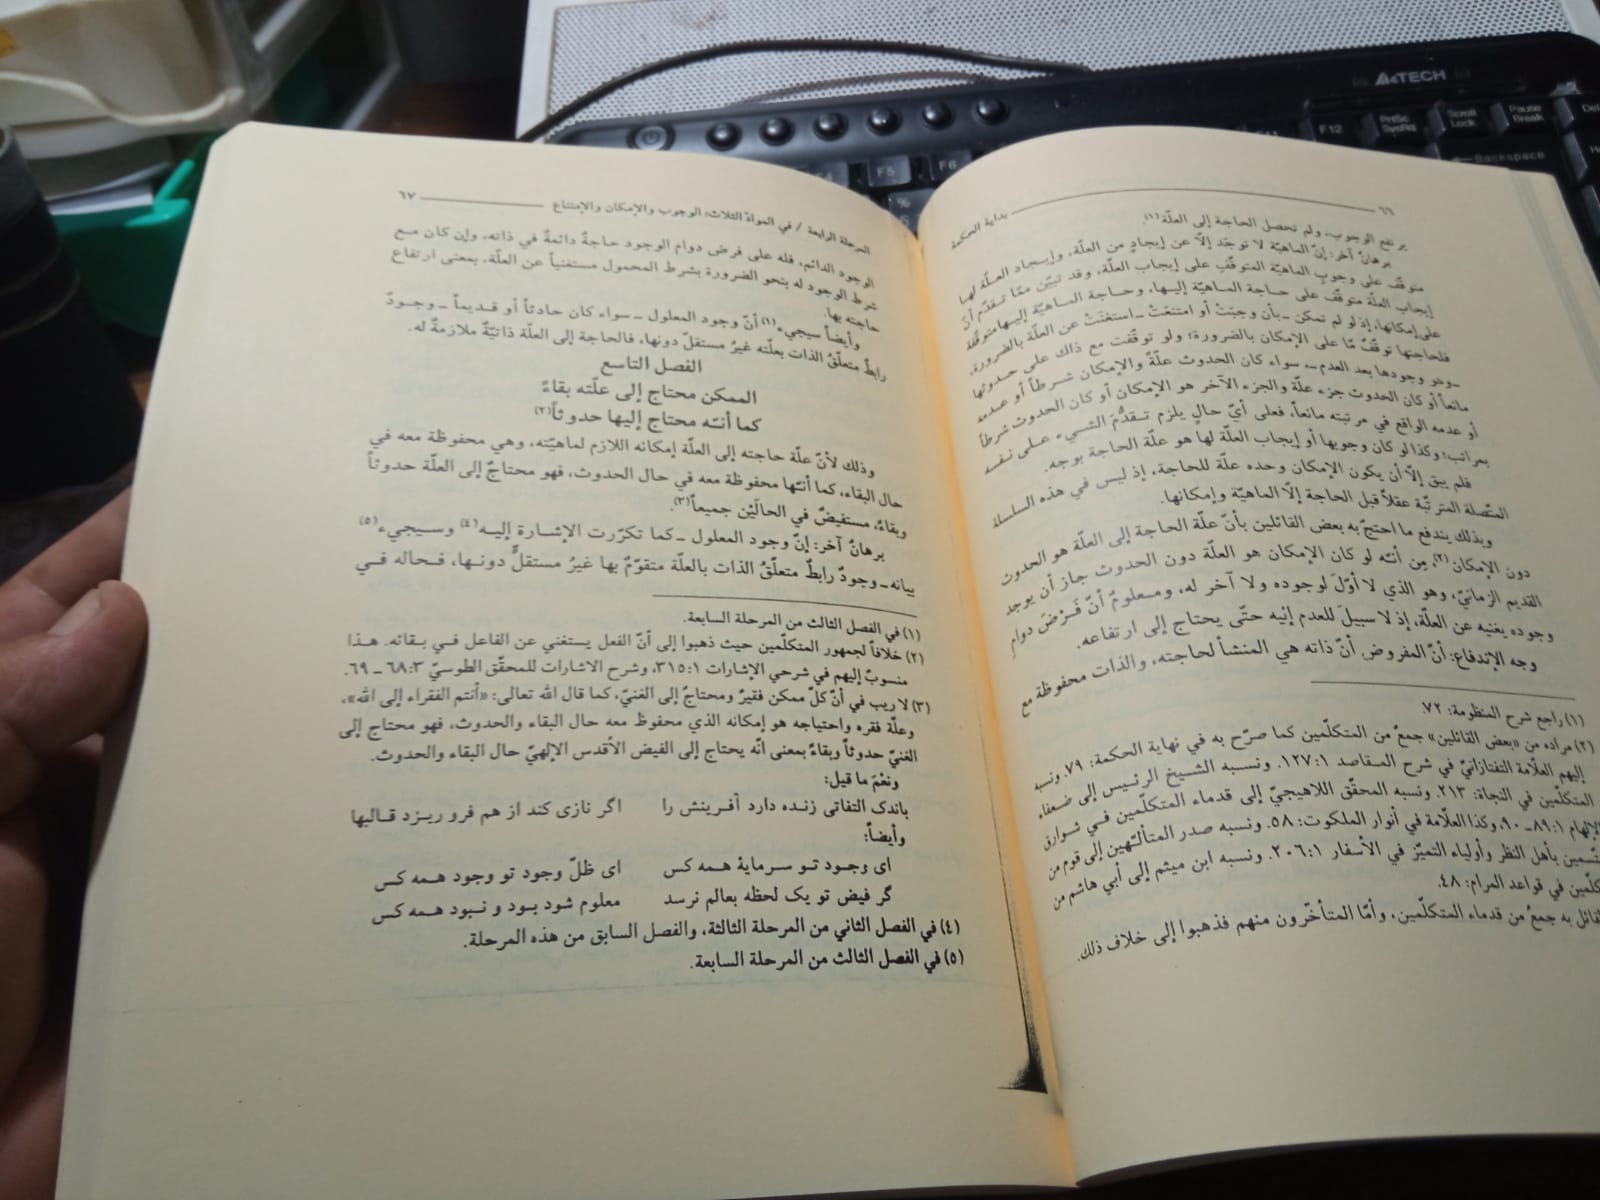 ٦٦ بداية الحكمة
يرتفع الوجوب، ولم تحصل الحاجة إلى العلّة(١).
برهان آخر: إنّ الماهيّة لا توجَد إلّا عن إيجادٍ من العلّة، وإيجاد العلّة لها
متوقّف على وجوبِ الماهيّة المتوقّفِ على إيجاب العلّة، وقد تبيّن ممّا تقدّم أنّ
إيجاب العلّة متوقّف على حاجة الماهيّة إليها، وحاجة الماهيّة إليها متوقّفة
على إمكانها، إذ لو لم تمكن ـ بأن وجبَتْ أو امتنعَتْ ـ استغنَتْ عن العلّة بالضرورة،
فلحاجتها توقّفٌ مّا على الإمكان بالضرورة؛ ولو توقّفت مع ذلك على حدوثها
ـ وهو وجودها بعد العدم ـ، سواء كان الحدوث علّةً والإمكان شرطاً أو عدمه
مانعاً أو كان الحدوث جزء علّة والجزء الآخر هو الإمكان أو كان الحدوث شرطاً
أو عدمه الواقع في مرتبته مانعاً، فعلى أيّ حالٍ يلزم تقدُّمَ الشيء على نفسه
بمراتب؛ وكذا لو كان وجوبها أو إيجاب العلّة لها هو علّة الحاجة بوجه.
فلم يبق إلّا أن يكون الإمكان وحده علّة للحاجة، إذ ليس في هذه السلسلة
المتّصلة المترتّبة عقلاً قبل الحاجة إلّا الماهيّة وإمكانها.
وبذلك يندفع ما احتجّ به بعض القائلين بأنّ علّة الحاجة إلى العلّة هو الحدوث
دون الإمكان(٢)، مِن أنّه لو كان الإمكان هو العلّة دون الحدوث جاز أن يوجد
القديم الزمانيّ، وهو الذي لا أوّلَ لوجوده ولا آخر له، ومعلومٌ أنّ فَرْضَ دوامِ
وجوده يغنيه عن العلّة، إذ لا سبيلَ للعدم إليه حتّى يحتاج إلى ارتفاعه.
وجه الإندفاع: أنّ المفروض أنّ ذاته هي المنشأ لحاجته، والذات محفوظة مع
(١) راجع شرح المنظومة: ٧٢.
(٢) مراده من «بعض القائلين» جمعٌ من المتكلّمين كما صرّح به في نهاية الحكمة: ٧٩. ونسبه
إليهم العلّامة التفتازانيّ في شرح المقاصد ١:‏١٢٧. ونسبه الشيخ الرئيس إلى ضعفاء
المتكلّمين في النجاة: ٢١٣. ونسبه المحقّق اللاهيجيّ إلى قدماء المتكلّمين في شوارق
الإلهام ١:‏٨٩ ـ ٩٠، وكذا العلّامة في أنوار الملكوت: ٥٨. ونسبه صدر المتألّهين إلى قوم من
بأهل النظر وأولياء التميّز في الأسفار ١:‏٢٠٦. ونسبه ابن ميثم إلى أبي هاشم من
في قواعد المرام: ٤٨.
به جمعٌ من قدماء المتكلّمين، وأمّا المتأخّرون منهم فذهبوا إلى خلاف ذلك.
المرحلة الرابعة / في الموادّ الثلاث: الوجوب والإمكان والإمتناع ٦٧
الوجود الدائم، فله على فرض دوام الوجود حاجةٌ دائمةٌ في ذاته، وإن كان مع
شرط الوجود له بنحو الضرورة بشرط المحمول مستغنياً عن العلّة، بمعنى ارتفاع
حاجته بها.
وأيضاً سيجيء(١) أنّ وجود المعلول ـ سواء كان حادثاً أو قديماً ـ وجودٌ
رابطٌ متعلّقُ الذات بعلّته غيرُ مستقلّ دونها، فالحاجة إلى العلّة ذاتيّةٌ ملازمةٌ له.
الفصل التاسع
الممكن محتاج إلى علّته بقاءً
كما أنّه محتاج إليها حدوثاً(٢)
وذلك لأنّ علّة حاجته إلى العلّة إمكانه اللازم لماهيّته، وهي محفوظة معه في
حال البقاء، كما أنّها محفوظة معه في حال الحدوث، فهو محتاجٌ إلى العلّة حدوثاً
وبقاءً، مستفيضٌ في الحالَيْن جميعاً(٣).
برهانٌ آخر: إنّ وجود المعلول ـ كما تكرّرت الإشارة إليه(٤) وسيجيء(٥)
بيانه ـ وجودٌ رابطٌ متعلّقُ الذات بالعلّة متقوّمٌ بها غيرُ مستقلٍّ دونها، فحاله في
(١) في الفصل الثالث من المرحلة السابعة.
(٢) خلافاً لجمهور المتكلّمين حيث ذهبوا إلى أنّ الفعل يستغني عن الفاعل في بقائه. هذا
منسوبٌ إليهم في شرحي الإشارات ١:‏٣١٥، وشرح الاشارات للمحقّق الطوسيّ ٣:‏٦٨ ـ ٦٩.
(٣) لا ريب في أنّ كلّ ممكن فقيرٌ ومحتاجٌ إلى الغنيّ، كما قال الله تعالى: «أنتم الفقراء إلى الله»،
وعلّة فقره واحتياجه هو إمكانه الذي محفوظ معه حال البقاء والحدوث، فهو محتاج إلى
الغنيّ حدوثاً وبقاءً بمعنى انّه يحتاج إلى الفيض الأقدس الإلهيّ حال البقاء والحدوث.
ونعْمَ ما قيل:
باندک التفاتى زنده دارد آفرینش را اگر نازی کند از هم فرو ریزد قالبها
وأيضاً:
ای وجود تو سرمایهٔ همه کس ای ظلّ وجود تو وجود همه کس
گر فیض تو یک لحظه بعالم نرسد معلوم شود بود و نبود همه کس
(٤) في الفصل الثاني من المرحلة الثالثة، والفصل السابق من هذه المرحلة.
(٥) في الفصل الثالث من المرحلة السابعة.
A4TECH
F12
PrtSc
SysRq
Scroll
Lock
Pause
Break
Backspace
F5
F6